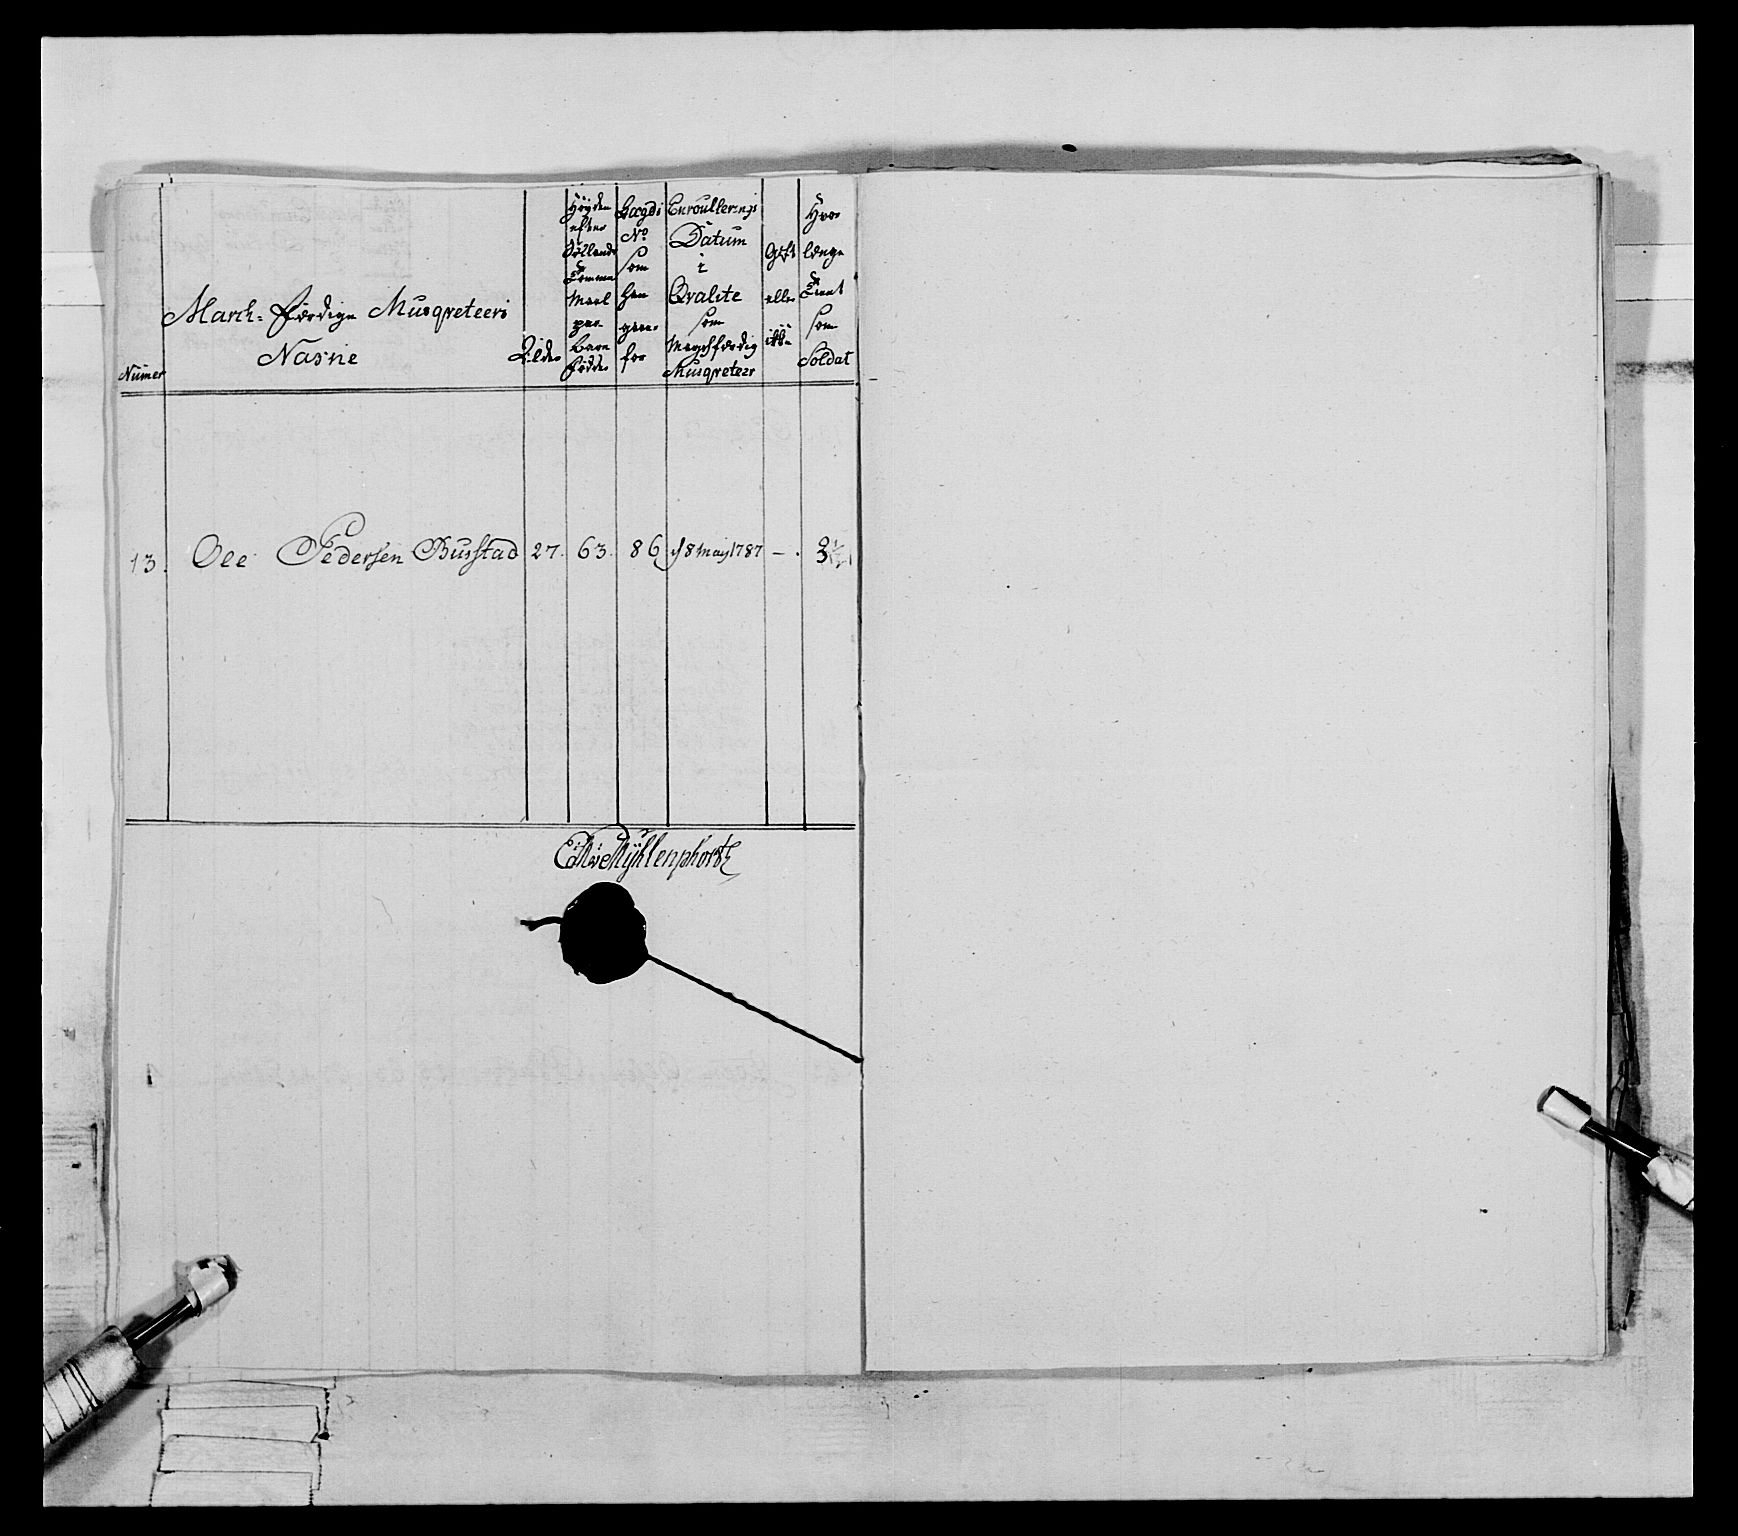 Numer
March: færdige Musqveteers
Nafne
Alder
Høyden
efter
Sællands
Tomme
Maal
paa
bare
Fødder
Lægds
No
som
han
giøre
for
Enroullerings
Datum
i
Qvalite
som
Marchfærdig
Musqveteer
Gift
eller
ikke
Hvor
længe
Tient
som
Soldat
13. Ole Pedersen Busstad 27. 63. 86 d 8 May 1787 - . 3½
Mühlenphort